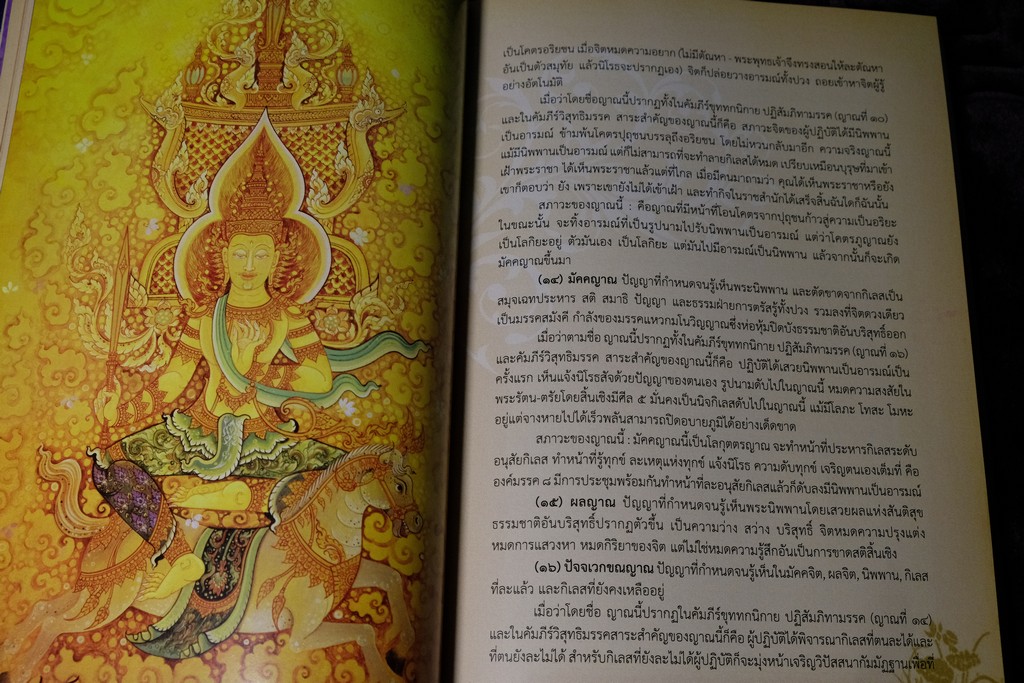 เป็นโคตรอริยชน เมื่อจิตหมดความอยาก (ไม่มีตัณหา - พระพุทธเจ้าจึงทรงสอนให้ละตัณหา
อันเป็นตัวสมุทัย แล้วนิโรธจะปรากฏเอง) จิตก็ปล่อยวางอารมณ์ทั้งปวง ถอยเข้าหาจิตผู้รู้
อย่างอัตโนมัติ
เมื่อว่าโดยชื่อญาณนี้ปรากฏทั้งในคัมภีร์ขุททกนิกาย ปฏิสัมภิทามรรค (ญาณที่ ๑๐)
และในคัมภีร์วิสุทธิมรรค สาระสำคัญของญาณนี้ก็คือ สภาวะจิตของผู้ปฏิบัติได้มีนิพพาน
เป็นอารมณ์ ข้ามพ้นโคตรปุถุชนบรรลุถึงอริยชน โดยไม่หวนกลับมาอีก ความจริงญาณนี้
แม้มีนิพพานเป็นอารมณ์ แต่ก็ไม่สามารถที่จะทำลายกิเลสได้หมด เปรียบเหมือนบุรุษที่มาเข้า
เฝ้าพระราชา ได้เห็นพระราชาแล้วแต่ที่ไกล เมื่อมีคนมาถามว่า คุณได้เห็นพระราชาหรือยัง
เขาก็ตอบว่า ยัง เพราะเขายังไม่ได้เข้าเฝ้า และทำกิจในราชสำนักได้เสร็จสิ้นฉันใดก็ฉันนั้น
สภาวะของญาณนี้ : คือญาณที่มีหน้าที่โอนโคตรจากปุถุชนก้าวสู่ความเป็นอริยะ
ในขณะนั้น จะทิ้งอารมณ์ที่เป็นรูปนามไปรับนิพพานเป็นอารมณ์ แต่ว่าโคตรภูญาณยัง
เป็นโลกิยะอยู่ ตัวมันเอง เป็นโลกิยะ แต่มันไปมีอารมณ์เป็นนิพพาน แล้วจากนั้นก็จะเกิด
มัคคญาณขึ้นมา
(๑๔) มัคคญาณ ปัญญาที่กำหนดจนรู้เห็นพระนิพพาน และตัดขาดจากกิเลสเป็น
สมุจเฉทประหาร สติ สมาธิ ปัญญา และธรรมฝ่ายการตรัสรู้ทั้งปวง รวมลงที่จิตดวงเดียว
เป็นมรรคสมังคี กำลังของมรรคแหวกมโนวิญญาณซึ่งห่อหุ้มปิดบังธรรมชาติอันบริสุทธิ์ออก
เมื่อว่าตามชื่อ ญาณนี้ปรากฏทั้งในคัมภีร์ขุททกนิกาย ปฏิสัมภิทามรรค (ญาณที่ ๑๖)
และคัมภีร์วิสุทธิมรรค สาระสำคัญของญาณนี้ก็คือ ปฏิบัติได้เสวยนิพพานเป็นอารมณ์เป็น
ครั้งแรก เห็นแจ้งนิโรธสัจด้วยปัญญาของตนเอง รูปนามดับไปในญาณนี้ หมดความสงสัยใน
พระรัตน-ตรัยโดยสิ้นเชิงมีศีล ๕ มั่นคงเป็นนิจกิเลสดับไปในญาณนี้ แม้มีโลภะ โทสะ โมหะ
อยู่แต่จางหายไปได้เร็วพลันสามารถปิดอบายภูมิได้อย่างเด็ดขาด
สภาวะของญาณนี้ : มัคคญาณนี้เป็นโลกุตตรญาณ จะทำหน้าที่ประหารกิเลสระดับ
อนุสัยกิเลส ทำหน้าที่รู้ทุกข์ ละเหตุแห่งทุกข์ แจ้งนิโรธ ความดับทุกข์ เจริญตนเองเต็มที่ คือ
องค์มรรค ๘ มีการประชุมพร้อมกันทำหน้าที่ละอนุสัยกิเลสแล้วก็ดับลงมีนิพพานเป็นอารมณ์
(๑๕) ผลญาณ ปัญญาที่กำหนดจนรู้เห็นพระนิพพานโดยเสวยผลแห่งสันติสุข
ธรรมชาติอันบริสุทธิ์ปรากฏตัวขึ้น เป็นความว่าง สว่าง บริสุทธิ์ จิตหมดความปรุงแต่ง
หมดการแสวงหา หมดกิริยาของจิต แต่ไม่ใช่หมดความรู้สึกอันเป็นการขาดสติสิ้นเชิง
(๑๖) ปัจจเวกขณญาณ ปัญญาที่กำหนดจนรู้เห็นในมัคคจิต, ผลจิต, นิพพาน, กิเลส
ที่ละแล้ว และกิเลสที่ยังคงเหลืออยู่
เมื่อว่าโดยชื่อ ญาณนี้ปรากฏในคัมภีร์ขุททกนิกาย ปฏิสัมภิทามรรค (ญาณที่ ๑๔)
และในคัมภีร์วิสุทธิมรรคสาระสำคัญของญาณนี้ก็คือ ผู้ปฏิบัติได้พิจารณากิเลสที่ตนละได้และ
ที่ตนยังละไม่ได้ สำหรับกิเลสที่ยังละไม่ได้ผู้ปฏิบัติก็จะมุ่งหน้าเจริญวิปัสสนากัมมัฏฐานเพื่อที่